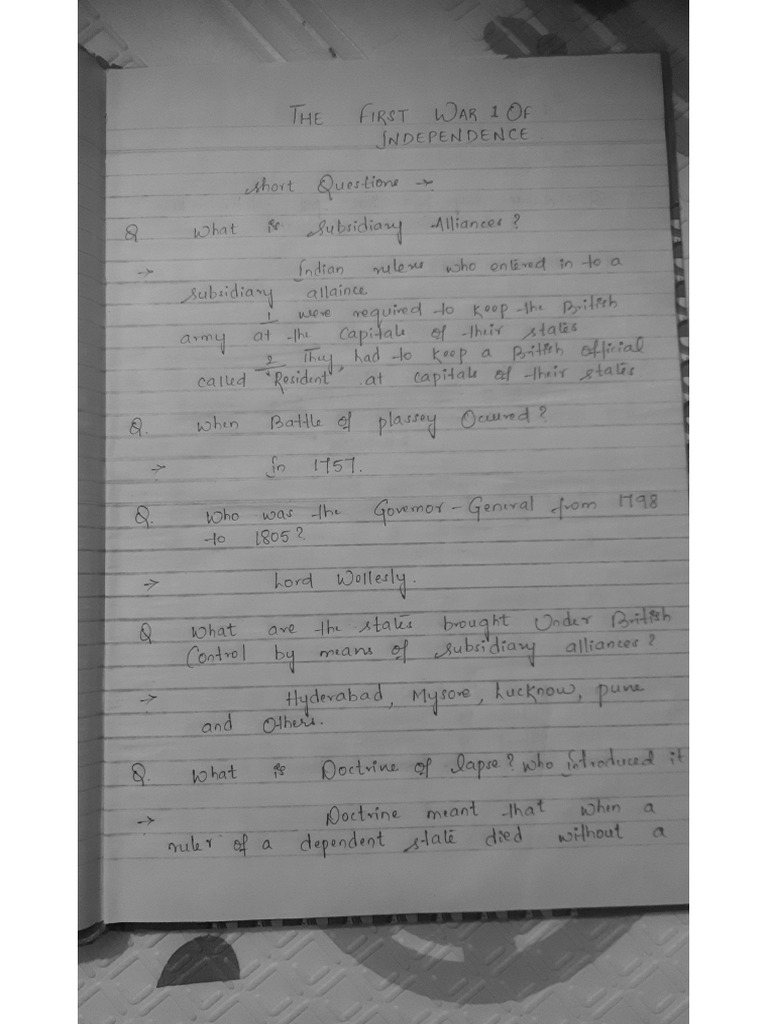 THE FIRST WAR 1 OF
INDEPENDENCE
Short Questions →
Q What is Subsidiary Alliances?
→ Indian rulers who entered in to a
subsidiary allaince
1 were required to keep the British
army at the Capitals of their states
2 They, had to keep a British official
called "Resident" at capitals of their states
Q. When Battle of plassey Occured?
→ In 1757.
Q. Who was the Governor-General from 1798
to 1805?
→ Lord Wollesly.
Q What are the states brought Under British
Control by means of subsidiary alliances?
→ Hyderabad, Mysore, Lucknow, pune
and Others.
Q. What is Doctrine of lapse? who introduced it
→ Doctrine meant that when a
ruler of a dependent state died without a